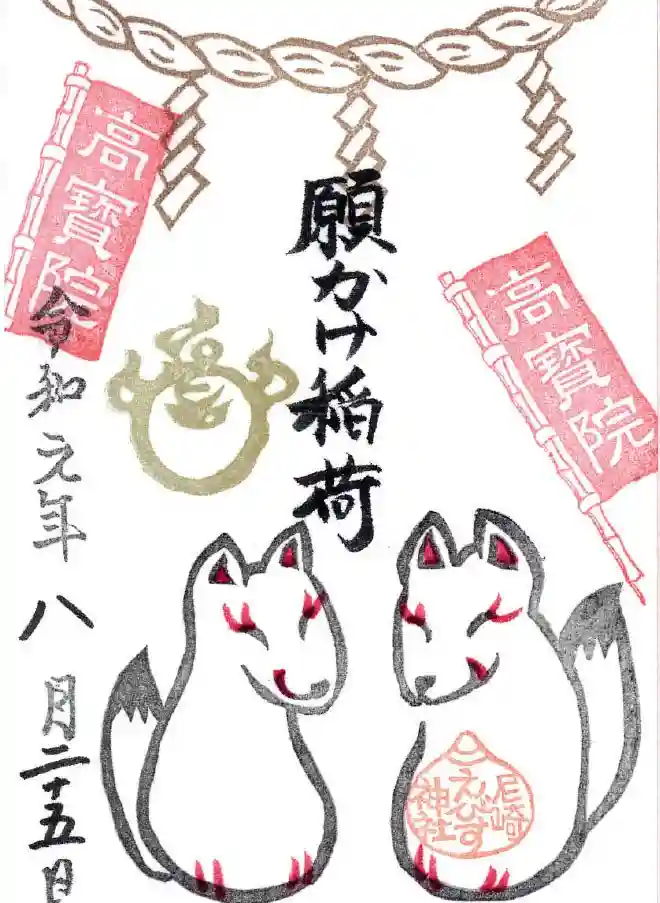 願かけ稲荷
高寳院
高寳院
令和元年八月二十五日
尼崎
えびす
神社